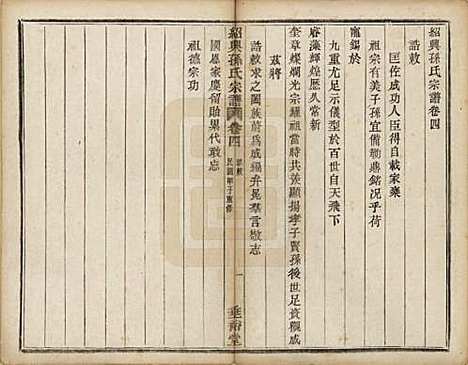 紹興孫氏宗譜卷四
誥敕
匡佐成功人臣得自載家乘
祖宗有美子孫宜備勒鼎銘况乎荷
寵錫於
九重尤足示儀型於百世自天飛下
睿藻輝煌歷久常新
奎章燦爛光宗耀祖當時共羨顯揚孝子賢孫後世足資觀感
茲將
誥敕求之闔族蔚爲成編弁冕羣言敬志
國恩家慶留貽累代敢忘
祖德宗功
紹興孫氏宗譜
卷四
誥敕
民國甲子重修
一
垂裕堂